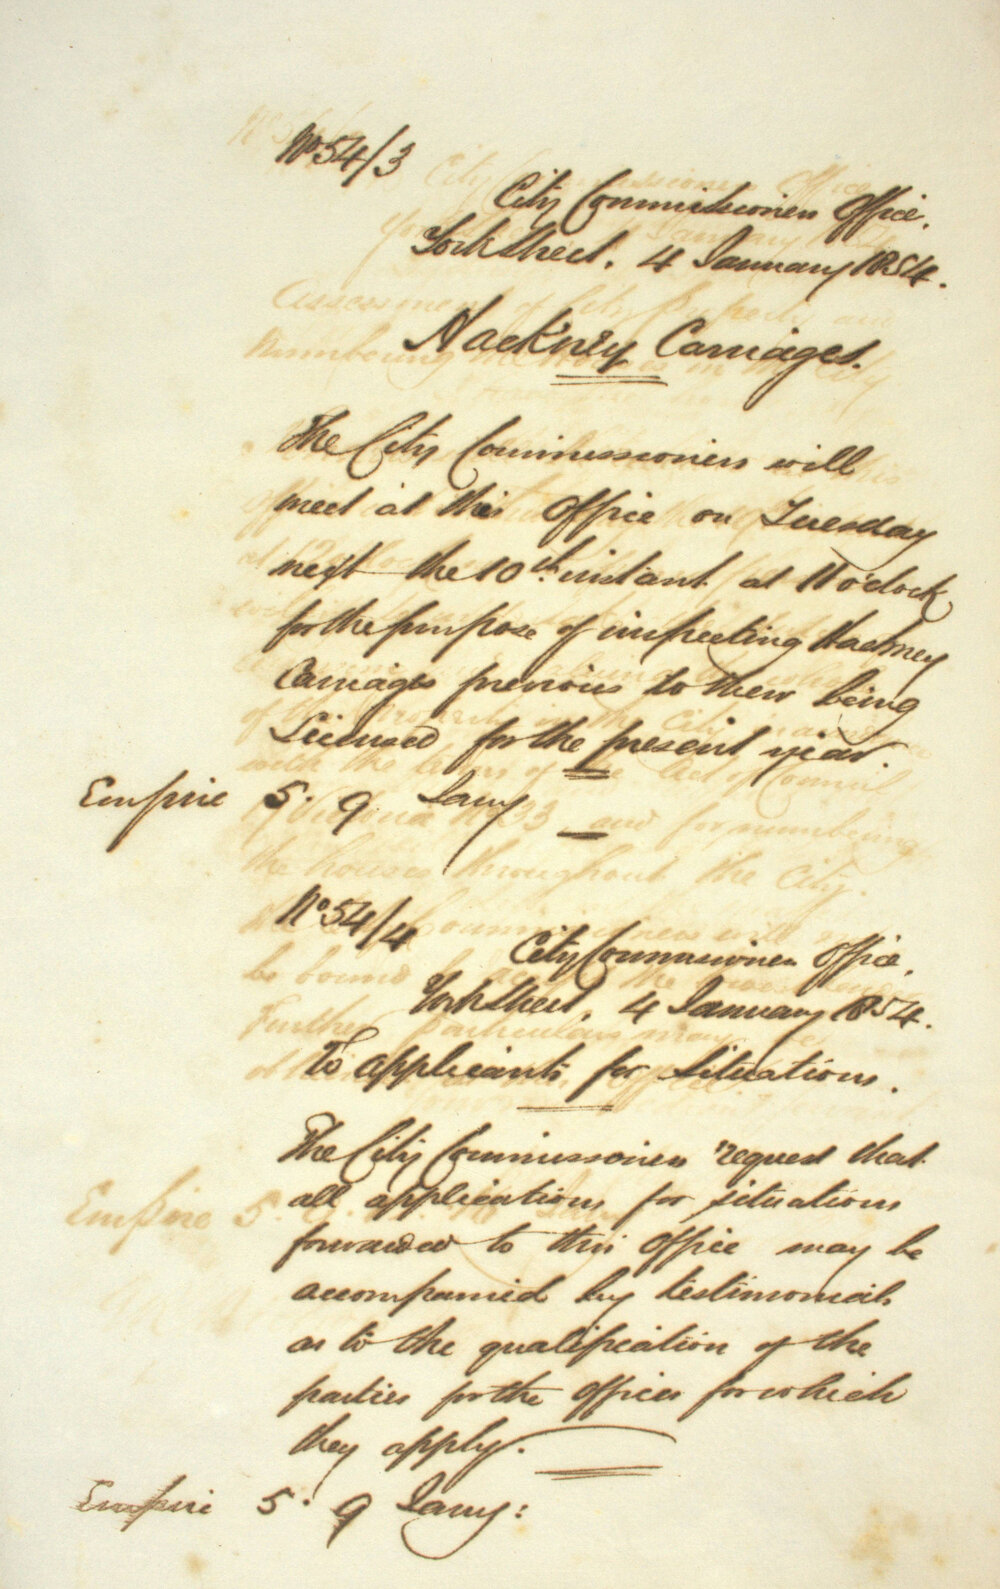 No 54/3
City Commissioners Office,
York Street, 4 January 1854.
Hackney Carriages.
The City Commissioners will
meet at this Office on Tuesday
next the 10th instant at 11 o'clock
for the purpose of inspecting Hackney
Carriages previous to their being
Licensed for the present year.
Empire 5. 9 Jany
No 54/4
City Commissioners Office,
York Street, 4 January 1854.
To applicants for situations.
The City Commissioners request that
all applications for situations
forwarded to this Office may be
accompanied by testimonials
as to the qualification of the
parties for the offices for which
they apply.
Empire 5. 9 Jany: